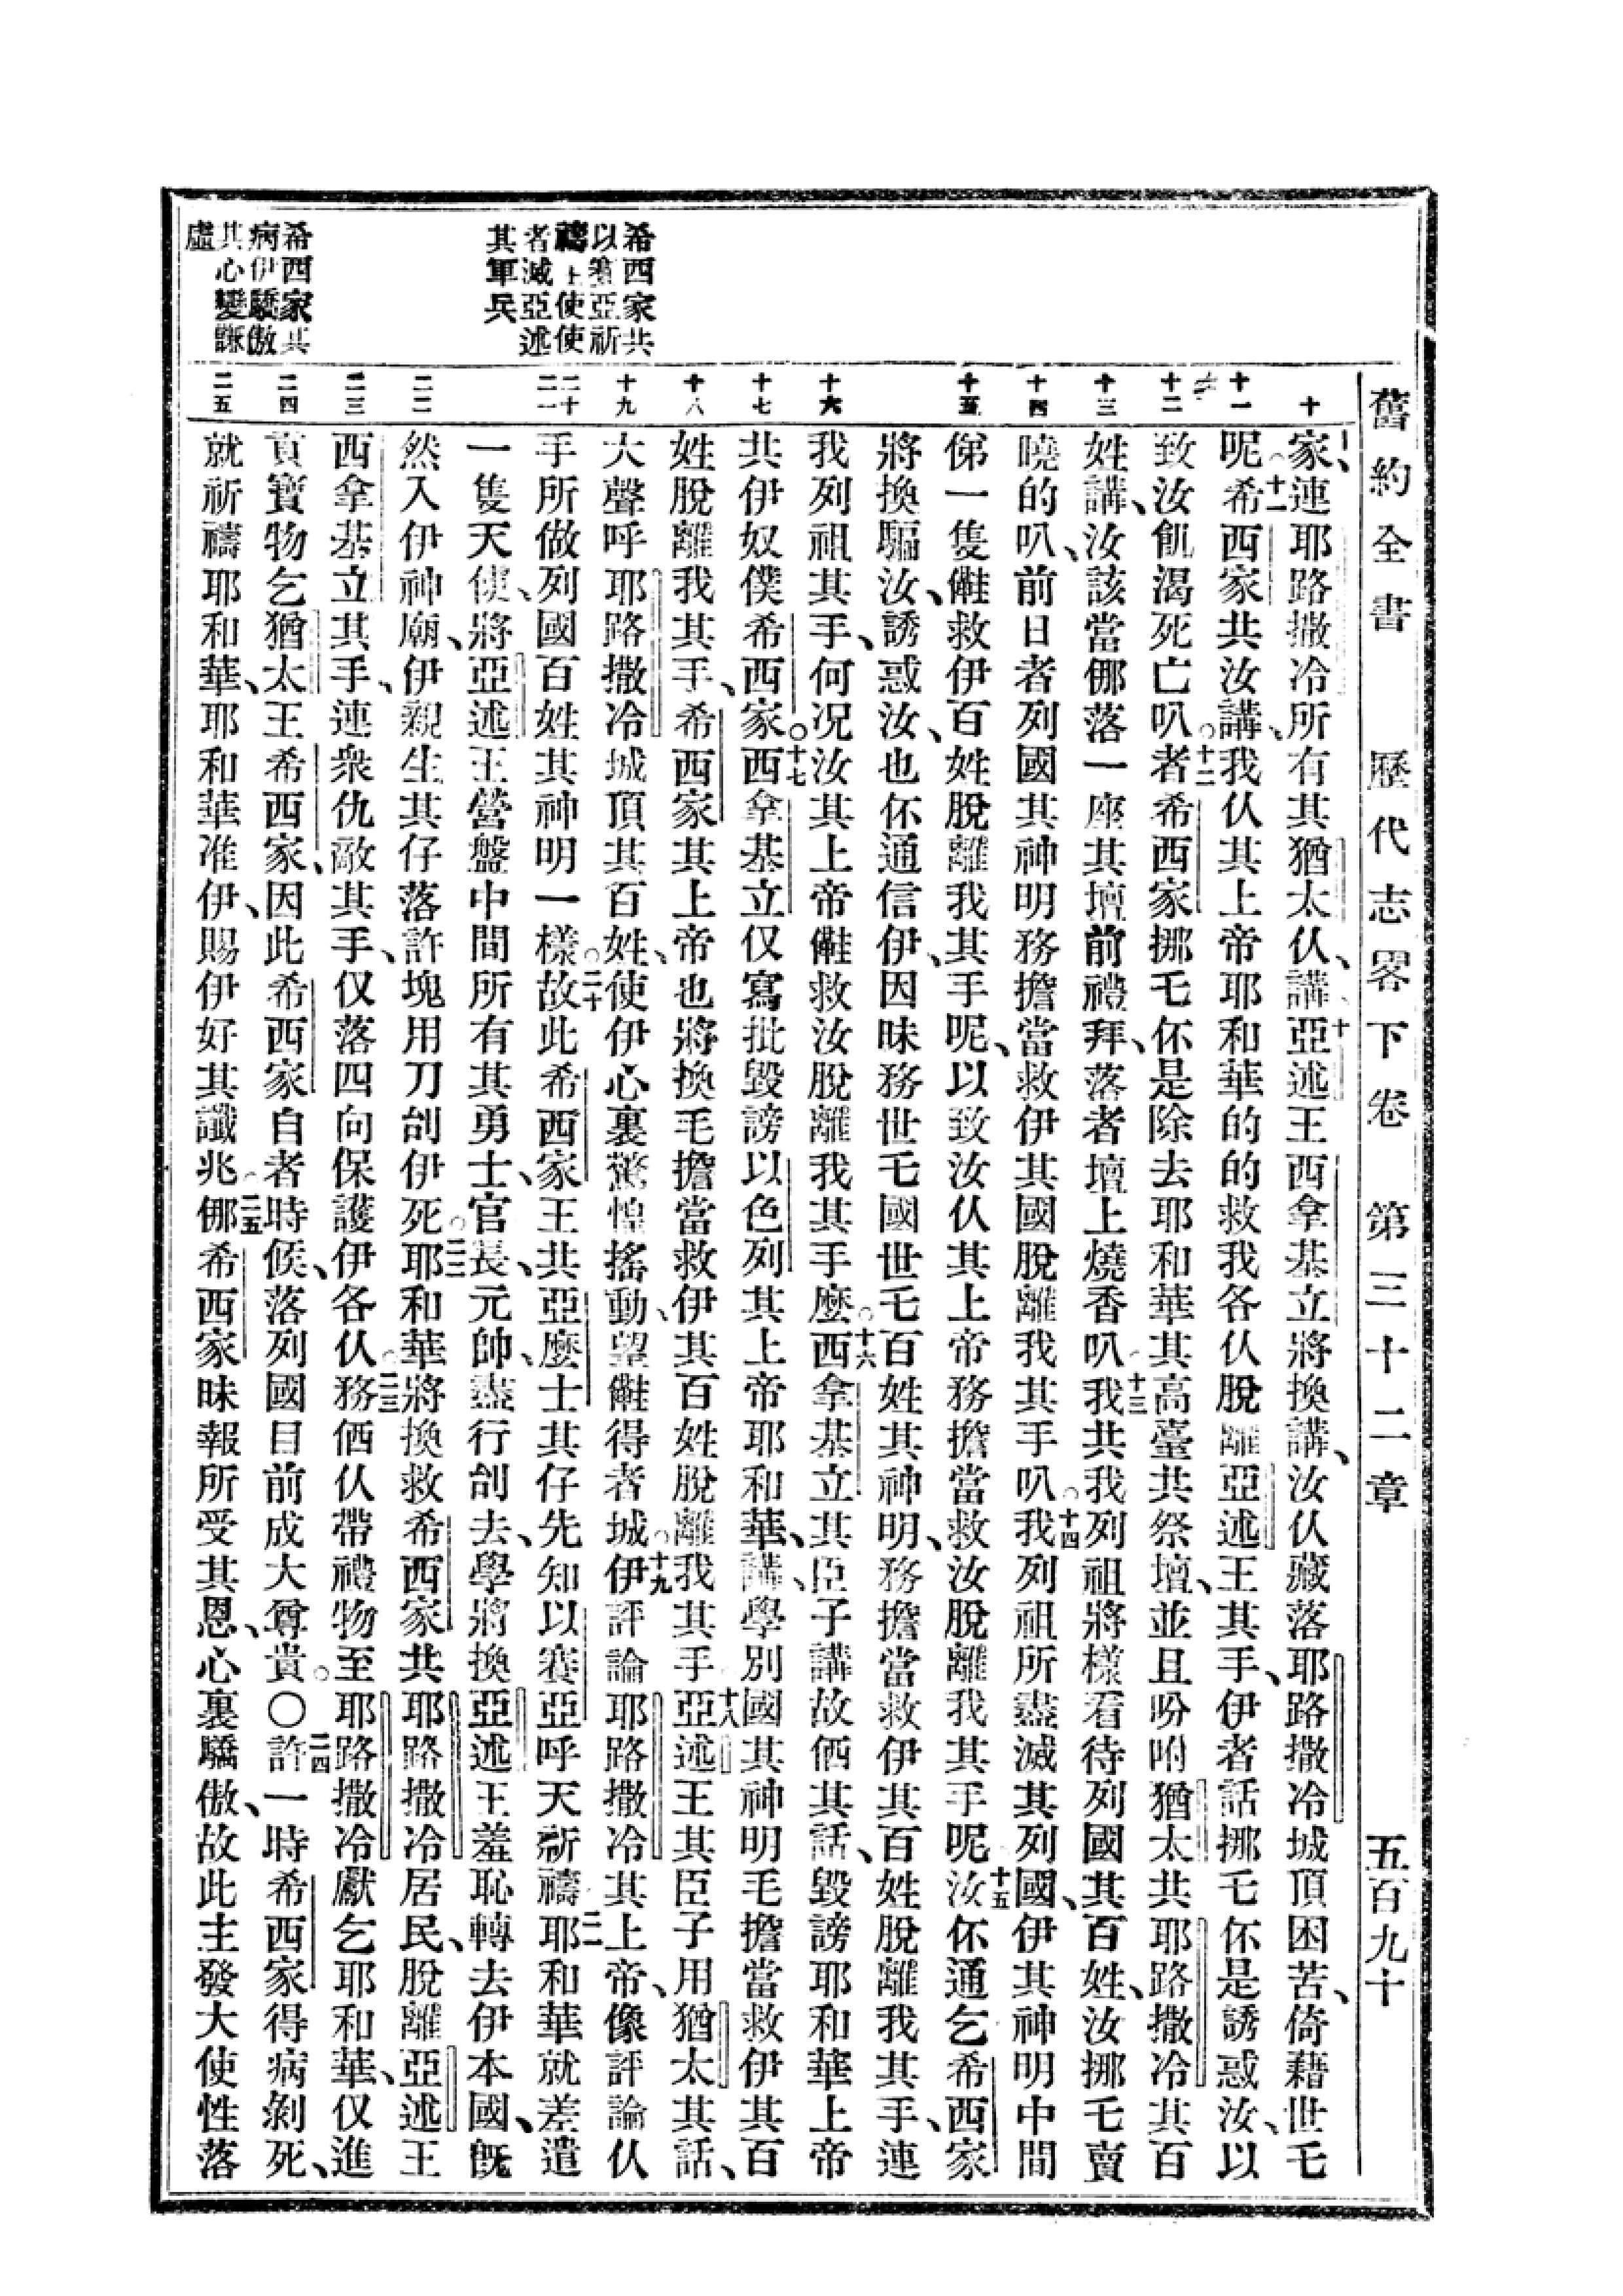 舊約全書　歷代志畧下卷　第三十二章　五百九十
希西家共
以賽亞祈
禱上使使
者滅亞述
其軍兵
希西家其
病伊驕傲
其心變謙
虛
十　十一　十二　十三　十四　十五　十六　十七　十八　十九　二十　二一　二二　二三　二四　二五
家、連耶路撒冷所有其猶太仈、講、十亞述王西拿基立將換講、汝仈藏落耶路撒冷城頂困苦、倚藉世乇
呢○十一希西家共汝講、我仈其上帝耶和華的的救我各仈脫離亞述王其手、伊者話挪乇伓是誘惑汝、以
致汝飢渴死亡叭○十二者希西家挪乇伓是除去耶和華其高臺共祭壇、並且吩咐猶太共耶路撒冷其百
姓講、汝該當㑚落一座其壇前禮拜、落者壇上燒香叭○十三我共我列祖將樣看待列國其百姓、汝挪乇賣
曉的叭、前日者列國其神明務擔當救伊其國脫離我其手叭○十四我列祖所盡滅其列國、伊其神明中間
俤一隻㒕救伊百姓脫離我其手呢、以致汝仈其上帝務擔當救汝脫離我其手呢十五汝伓通乞希西家
將換騙汝、誘惑汝、也伓通信伊、因昧務世乇國世乇百姓其神明、務擔當救伊其百姓脫離我其手、連
我列祖其手、何况汝其上帝㒕救汝脫離我其手麼○十六西拿基立其臣子講故㑚其話、毀謗耶和華上帝
共伊奴僕希西家○十七西拿基立仅寫批毀謗以色列其上帝耶和華、講、學別國其神明毛擔當救伊其百
姓脫離我其手、希西家其上帝也將換毛擔當救伊其百姓脫離我其手十八亞述王其臣子用猶太其話、
大聲呼耶路撒冷城頂其百姓、使伊心裏驚惶搖動、望㒕得者城○十九伊評論耶路撒冷其上帝、像評論仈
手所做列國百姓其神明一樣○二十故此希西家王共亞麼士其仔先知以賽亞呼天祈禱二一耶和華就差遣
一隻天使、將亞述王營盤中間所有其勇士、官長、元帥、盡行刣去、學將換亞述王羞恥轉去伊本國、旣
然入伊神廟、伊親生其仔落許塊用刀刣伊死○二二耶和華將換救希西家共耶路撒冷居民、脫離亞述王
西拿基立其手、連衆仇敵其手、仅落四向保護伊各仈○二三務㑚仈帶禮物至耶路撒冷獻乞耶和華、仅進
貢寶物乞猶太王希西家、因此希西家自者時候、落列國目前成大尊貴○〇二四許一時希西家得病剝死、
就祈禱耶和華、耶和華准伊、賜伊好其讖兆○二五㑚希西家昧報所受其恩、心裏驕傲、故此主發大使性落